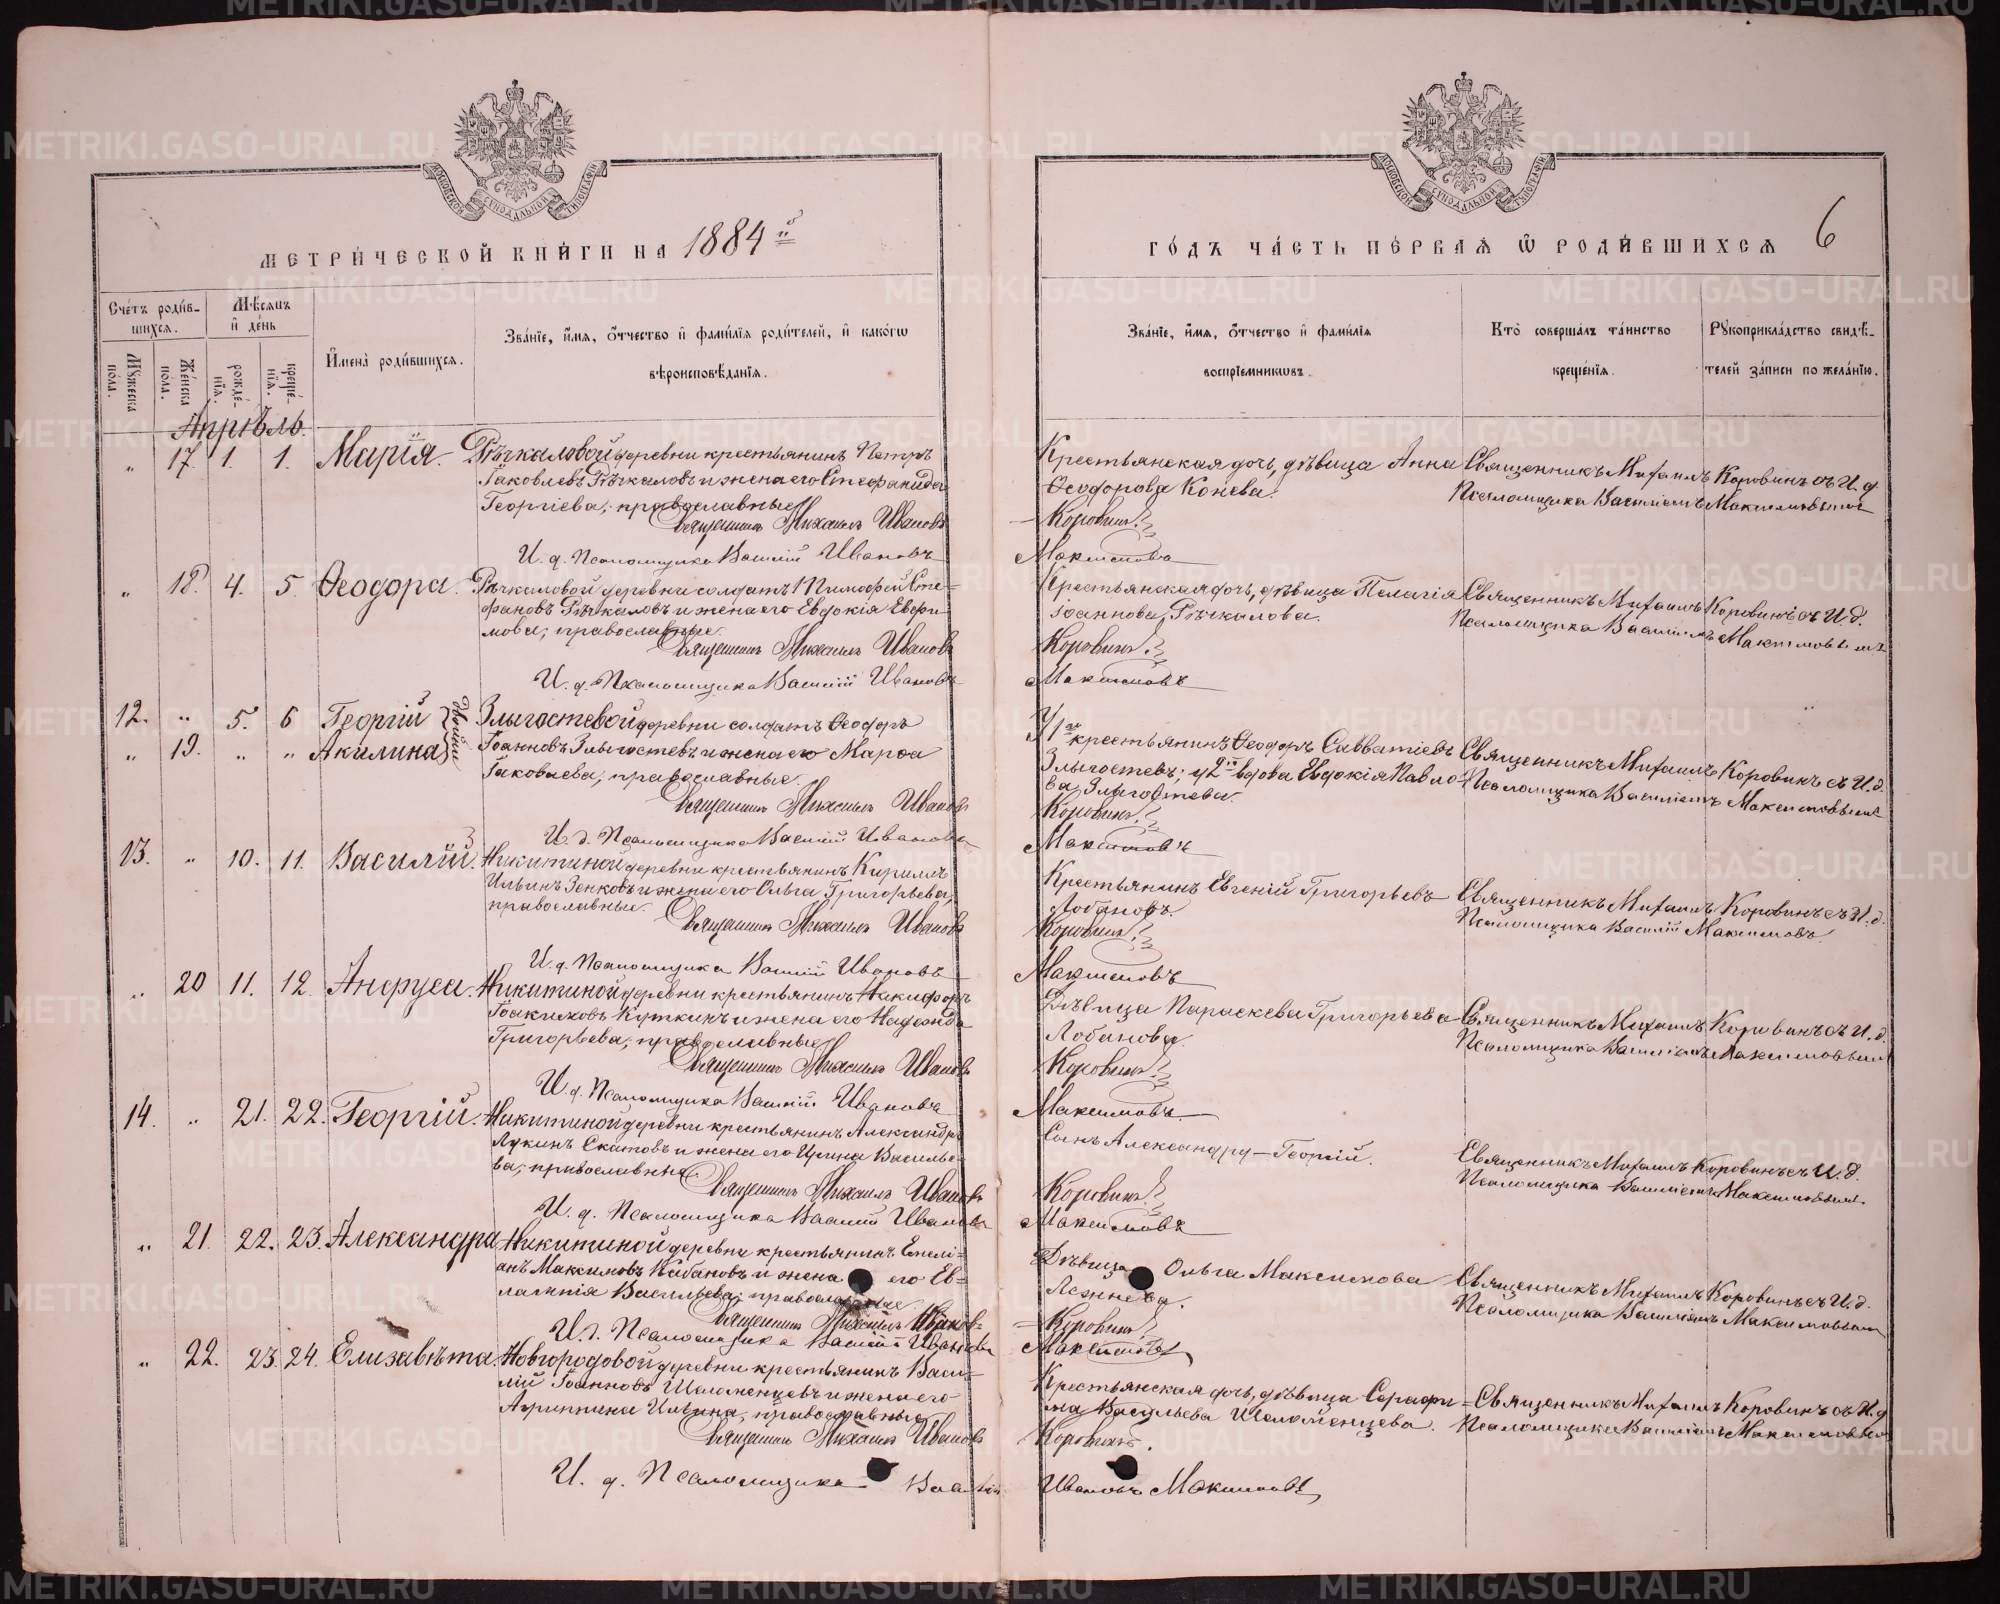 МЕТРИЧЕСКОЙ КНИГИ НА 1884й
Счетъ родив-
шихся.
Мѣсяцъ
и день
Мужеска
пола.
Женска
пола.
рожде-
нія.
креще-
нія.
Имена родившихся.
Званіе, имя, отчество и фамилія родителей, и какого
вѣроисповѣданія.
Апрѣль.
" 17. 1. 1. Марія. Рѣчкаловой деревни крестьянинъ Петръ
Іаковлевъ Рѣчкаловъ и жена его Стефанида
Георгіева, православные
Священникъ Михаилъ Ивановъ
И. д. Псаломщика Василій Ивановъ
" 18. 4. 5. Ѳеодора. Рѣчкаловой деревни солдатъ Тимофей Сте-
фановъ Рѣчкаловъ и жена его Евдокія Евфи-
мова, православные.
Священникъ Михаилъ Ивановъ
И. д. Псаломщика Василій Ивановъ
12. " 5. 6 Георгій Злыгостевой деревни солдатъ Ѳеодоръ
" 19. " " Акилина Іоанновъ Злыгостевъ и жена его Марѳа
Іаковлева, православные.
Священникъ Михаилъ Ивановъ
И. д. Псаломщика Василій Ивановъ
13. " 10. 11. Василій. Никитиной деревни крестьянинъ Кириллъ
Ильинъ Зенковъ и жена его Ольга Григорьева,
православные.
Священникъ Михаилъ Ивановъ
И. д. Псаломщика Василій Ивановъ
" 20 11. 12. Анфуса. Никитиной деревни крестьянинъ Никифоръ
Іоакимовъ Куткинъ и жена его Надежда
Григорьева, православные
Священникъ Михаилъ Ивановъ
И. д. Псаломщика Василій Ивановъ
14. " 21. 22. Георгій. Никитиной деревни крестьянинъ Александръ
Лукинъ Скатовъ и жена его Ирина Василье-
ва, православные
Священникъ Михаилъ Ивановъ
И. д. Псаломщика Василій Ивановъ
" 21. 22. 23. Александра Никитиной деревни крестьянинъ Емелі-
анъ Максимовъ Кабановъ и жена его Ев-
лампія Васильева, православные.
Священникъ Михаилъ Иванов-
И. д. Псаломщика Василій Ивановъ
" 22. 23. 24. Елизавѣта Новгородовой деревни крестьянинъ Васи-
лій Іоанновъ Шаломенцевъ и жена его
Агриппина Ильина, православные
Священникъ Михаилъ Ивановъ
И. д. Псаломщика Василій
ГОДЪ ЧАСТЬ ПЕРВАЯ Ѡ РОДИВШИХСЯ 6
Званіе, имя, отчество и фамилія
воспріемниковъ.
Кто совершалъ таинство
крещенія.
Рукоприкладство свидѣ-
телей записи по желанію.
Крестьянская дочь, дѣвица Анна Священникъ Михаилъ Коровинъ съ И. д.
Ѳеодорова Конева. Псаломщика Василіемъ Максимовымъ
Коровинъ.
Максимовъ
Крестьянская дочь, дѣвица Пелагія Священникъ Михаилъ Коровинъ съ И. д.
Іоаннова Рѣчкалова. Псаломщика Василіемъ Максимовымъ
Коровинъ.
Максимовъ
У 1го крестьянинъ Ѳеодоръ Савватіевъ Священникъ Михаилъ Коровинъ съ И. д.
Злыгостевъ; у 2й вдова Евдокія Павло- Псаломщика Василіемъ Максимовымъ
ва Злыгостева.
Коровинъ.
Максимовъ
Крестьянинъ Евгеній Григорьевъ Священникъ Михаилъ Коровинъ съ И. д.
Лобановъ. Псаломщика Василій Максимовъ.
Коровинъ.
Максимовъ
Дѣвица Параскева Григорьева Священникъ Михаилъ Коровинъ съ И. д.
Лобанова. Псаломщика Василіемъ Максимовымъ
Коровинъ.
Максимовъ
Сынъ Александру — Георгій. Священникъ Михаилъ Коровинъ съ И. д.
Псаломщика Василіемъ Максимовымъ.
Коровинъ.
Максимовъ
Дѣвица Ольга Максимова Священникъ Михаилъ Коровинъ съ И. д.
Лежнева. Псаломщика Василіемъ Максимовымъ
Коровинъ.
Максимовъ
Крестьянская дочь, дѣвица Серафи- Священникъ Михаилъ Коровинъ съ И. д
ма Васильева Шаломенцева. Псаломщика Василіемъ Максимовымъ
Коровинъ.
Ивановъ Максимовъ